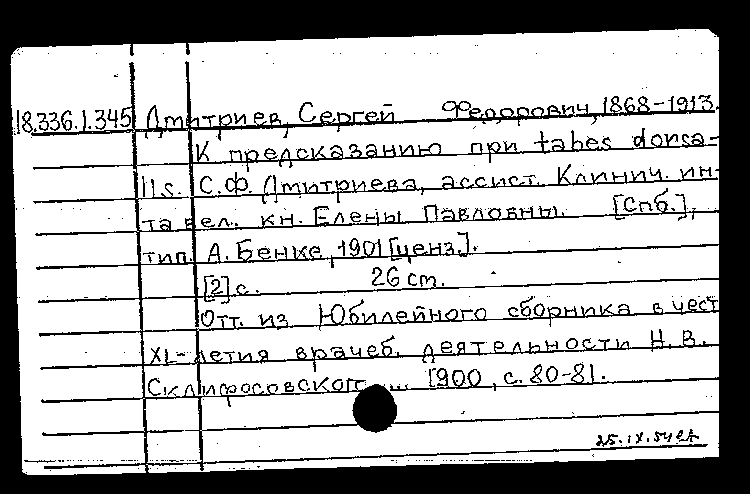 18.336.1.345 Дмитриев, Сергей Федорович, 1868-1913.
К предсказанию при tabes dorsa-
lis. С.Ф. Дмитриева, ассист. Клинич. ин-
та вел. кн. Елены Павловны. [Спб.],
тип. А. Бенке, 1901 [ценз.].
[2] с. 26 cm.
Отт. из Юбилейного сборника в чест
XL-летия врачеб. деятельности Н. В.
Склифосовского ... 1900, с. 80-81.
25.IX.54